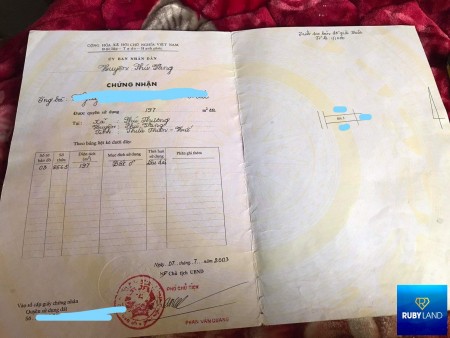 CỘNG HÒA XÃ HỘI CHỦ NGHĨA VIỆT NAM
Độc lập - Tự do - Hạnh phúc
ỦY BAN NHÂN DÂN
Huyện Phú Vang
CHỨNG NHẬN
Ông bà
Được quyền sử dụng 197 m² đất
Tại: Xã Phú Thượng
Huyện Phú Vang
Tỉnh Thừa Thiên - Huế
Theo bảng liệt kê dưới đây:
Số tờ bản đồ Số thửa Diện tích (m²) Mục đích sử dụng Thời hạn sử dụng Phần ghi thêm
03 197 Đất ở Lâu dài
Ngày 07 tháng 7 năm 2003
TM
Chủ tịch UBND
PHÓ CHỦ TỊCH
PHAN VĂN QUANG
Vào sổ cấp giấy chứng nhận
Quyền sử dụng đất
Số
RUBYLAND